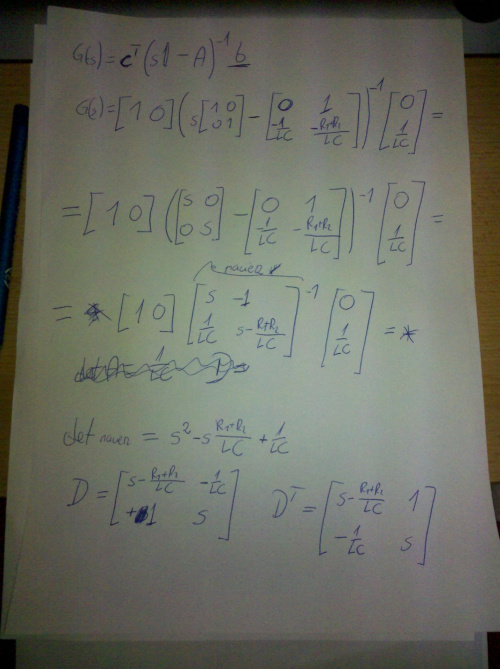 G(s) = cᵀ (s1 − A)⁻¹ b
G(s) = [1 0] (s [1 0; 0 1] − [0 1; -1/LC -R1+R2/LC])⁻¹ [0; 1/LC] =
= [1 0] ([s 0; 0 s] − [0 1; 1/LC -R1+R2/LC])⁻¹ [0; 1/LC] =
nawen
= [1 0] [s -1; 1/LC s-R1+R2/LC]⁻¹ [0; 1/LC] = *
det nawen = s² - s R1+R2/LC + 1/LC
D = [s-R1+R2/LC -1/LC; +1 s] Dᵀ = [s-R1+R2/LC 1; -1/LC s]